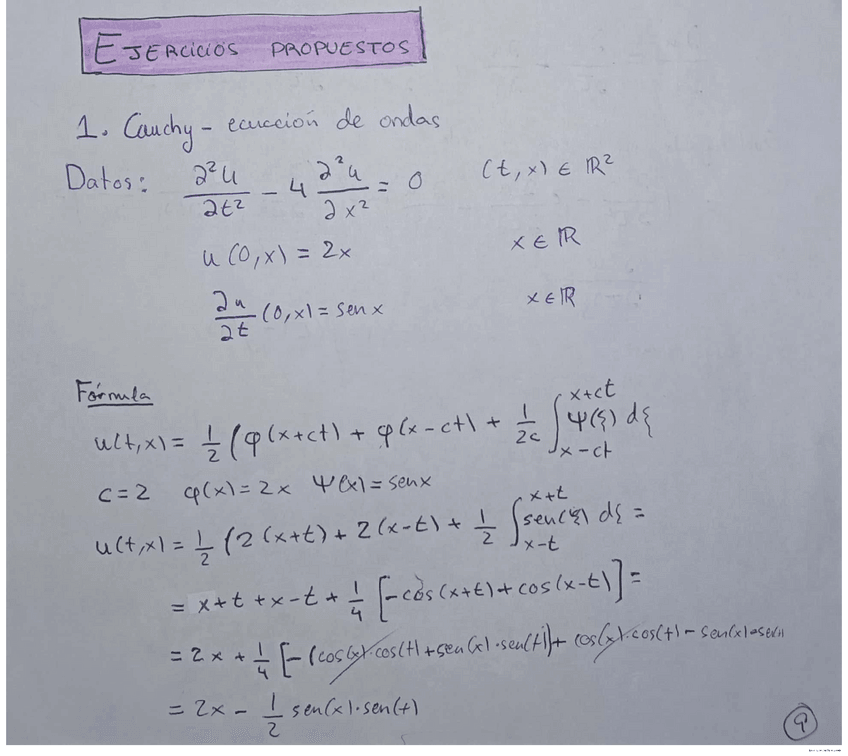 EJERCICIOS PROPUESTOS
1. Cauchy - ecuación de ondas
Datos: ∂²u/∂t² - 4 ∂²u/∂x² = 0 (t,x) ∈ ℝ²
u(0,x) = 2x x ∈ ℝ
∂u/∂t (0,x) = sen x x ∈ ℝ
Fórmula
u(t,x) = 1/2 (φ(x+ct) + φ(x-ct) + 1/2c ∫_{x-ct}^{x+ct} Ψ(ξ) dξ
c = 2 φ(x) = 2x Ψ(x) = sen x
u(t,x) = 1/2 (2(x+t) + 2(x-t) + 1/2 ∫_{x-t}^{x+t} sen(ξ) dξ =
= x+t+x-t + 1/4 [-cos(x+t) + cos(x-t)] =
= 2x + 1/4 [-(cos(x)·cos(t) + sen(x)·sen(t)) + cos(x)·cos(t) - sen(x)·sen
= 2x - 1/2 sen(x)·sen(t)